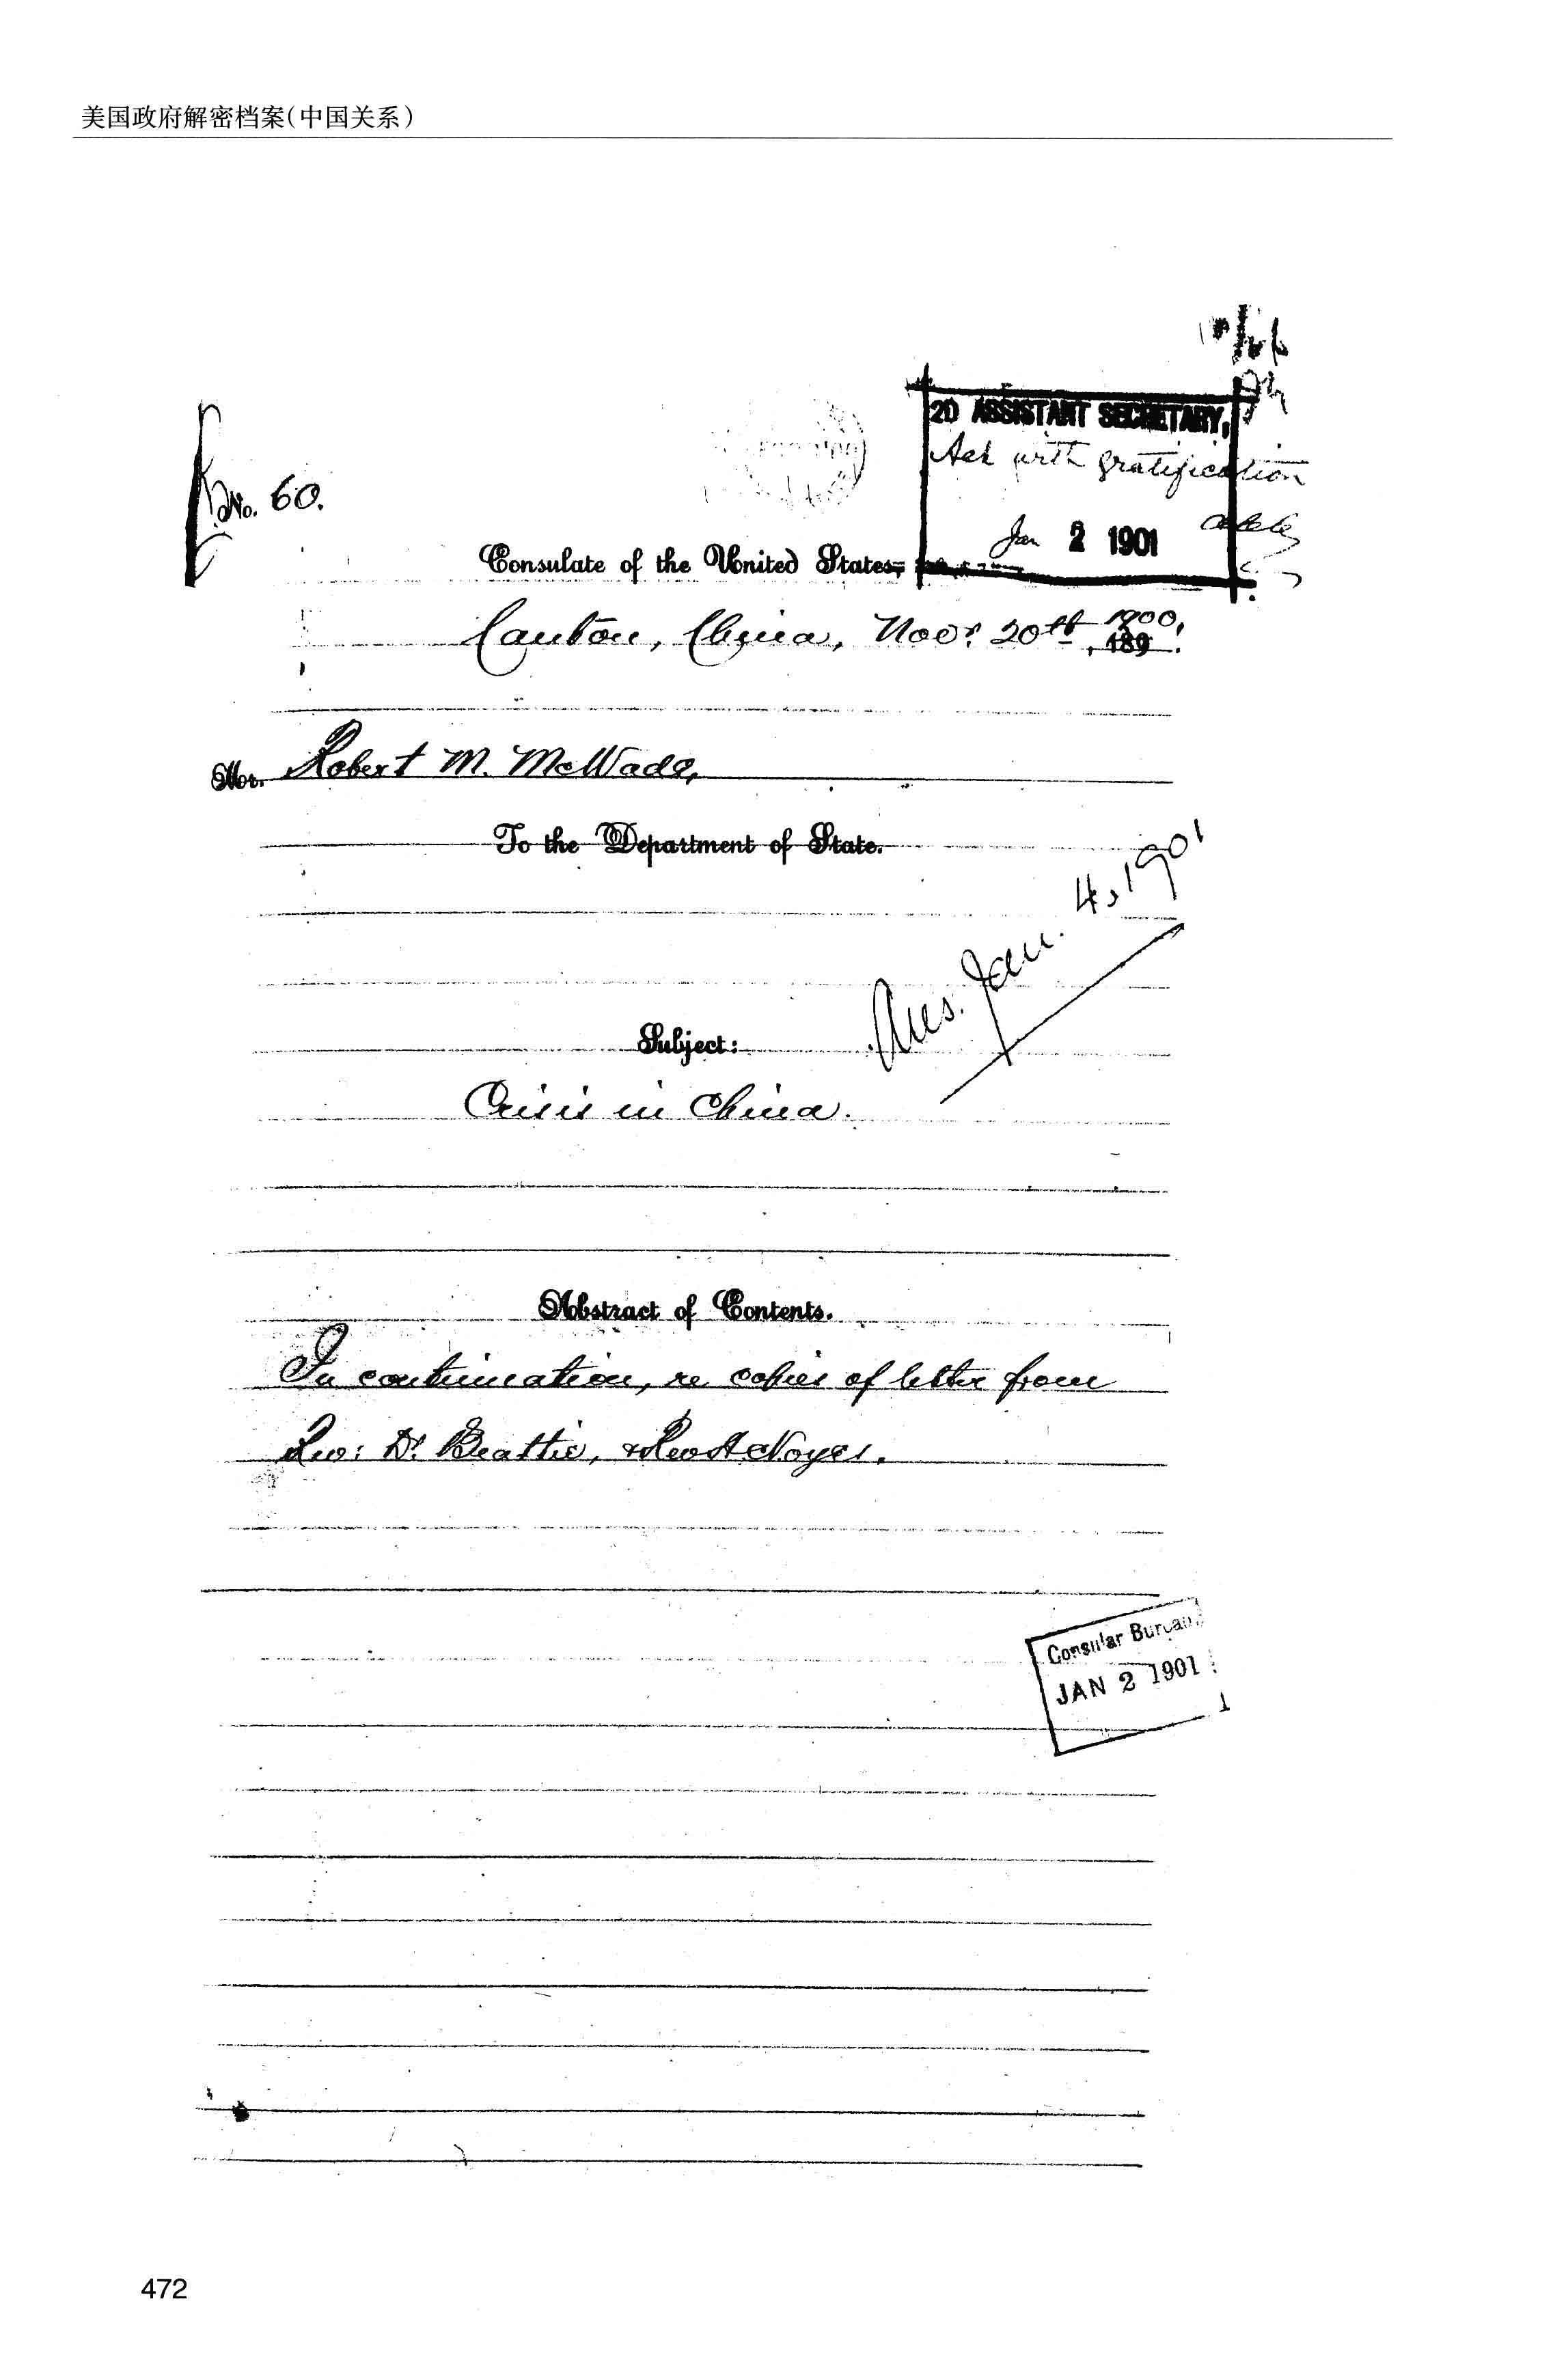 美国政府解密档案(中国关系)
2D ASSISTANT SECRETARY,
Ack with gratification
Jan 2 1901
No. 60.
Consulate of the United States,
Canton, China, Novr 20th, 1900.
189
Mr. Robert M. McWade,
To the Department of State.
Ans. Jan. 4, 1901
Subject:
Crisis in China.
Abstract of Contents.
In continuation, re copies of letter from
Rev: Dr Beattie, & Rev A Noyes.
Consular Bureau,
JAN 2 1901
472